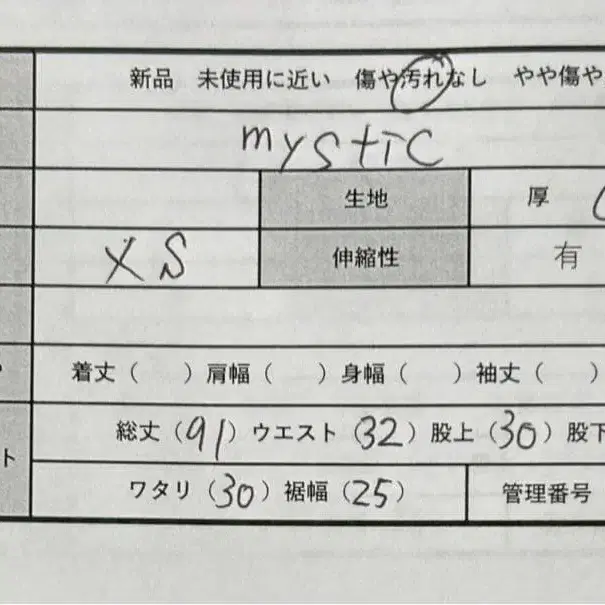 新品 未使用に近い 傷や汚れなし やや傷や
mystic
生地 厚
XS 伸縮性 有
着丈（ ）肩幅（ ）身幅（ ）袖丈（ ）
総丈（91）ウエスト（32）股上（30）股下
ト
ワタリ（30）裾幅（25） 管理番号